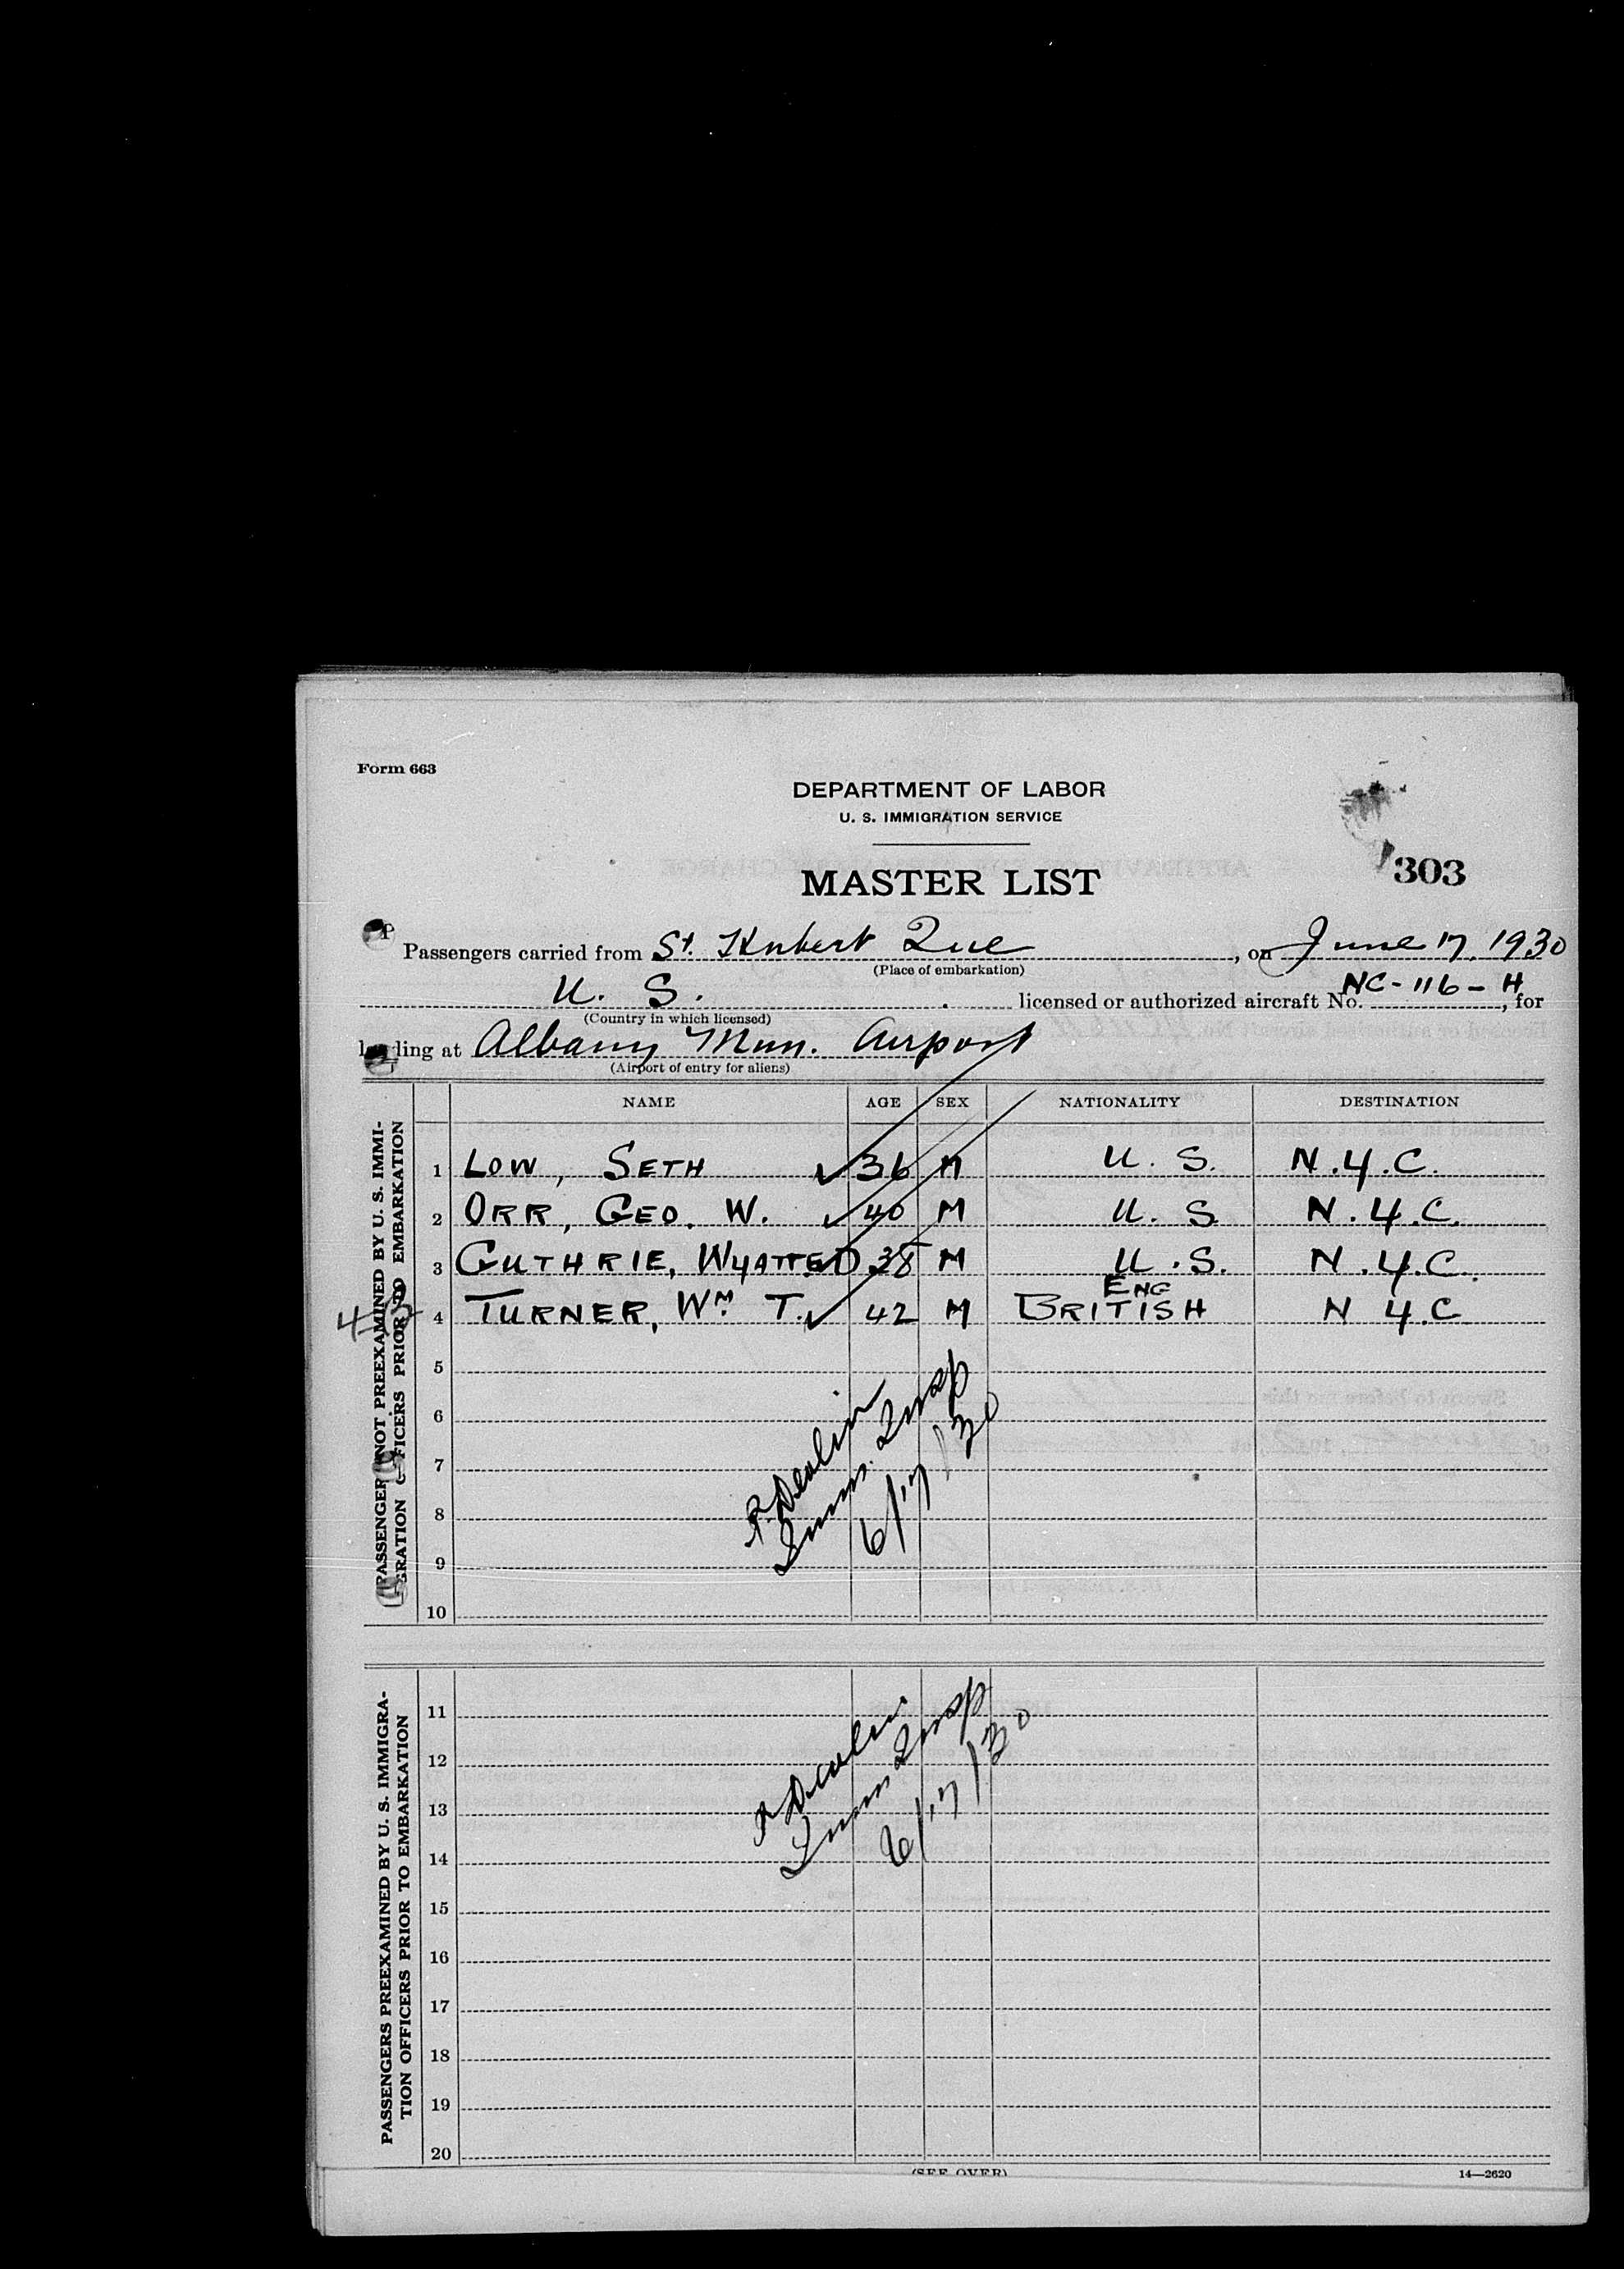 Form 663
DEPARTMENT OF LABOR
U. S. IMMIGRATION SERVICE
MASTER LIST
303
Passengers carried from St. Hubert Que, on June 17, 1930
(Place of embarkation)
U. S. licensed or authorized aircraft No. NC-116-H, for
(Country in which licensed)
landing at Albany Mun. Airport
(Airport of entry for aliens)
NAME AGE SEX NATIONALITY DESTINATION
PASSENGERS NOT PREEXAMINED BY U. S. IMMI-
GRATION OFFICERS PRIOR TO EMBARKATION
1 LOW, SETH ✓ 36 M U. S. N.Y.C.
2 ORR, GEO. W. ✓ 40 M U. S. N.Y.C.
3 GUTHRIE, WYATT 38 M U.S. N.Y.C.
ENG
4 TURNER, WM T. ✓ 42 M BRITISH N Y.C
5
6
7
8
9
10
Imm. Insp
6/17/30
PASSENGERS PREEXAMINED BY U. S. IMMIGRA-
TION OFFICERS PRIOR TO EMBARKATION
11
12
13
14
15
16
17
18
19
20
Imm Insp
6/17/30
(SEE OVER)
14—2620